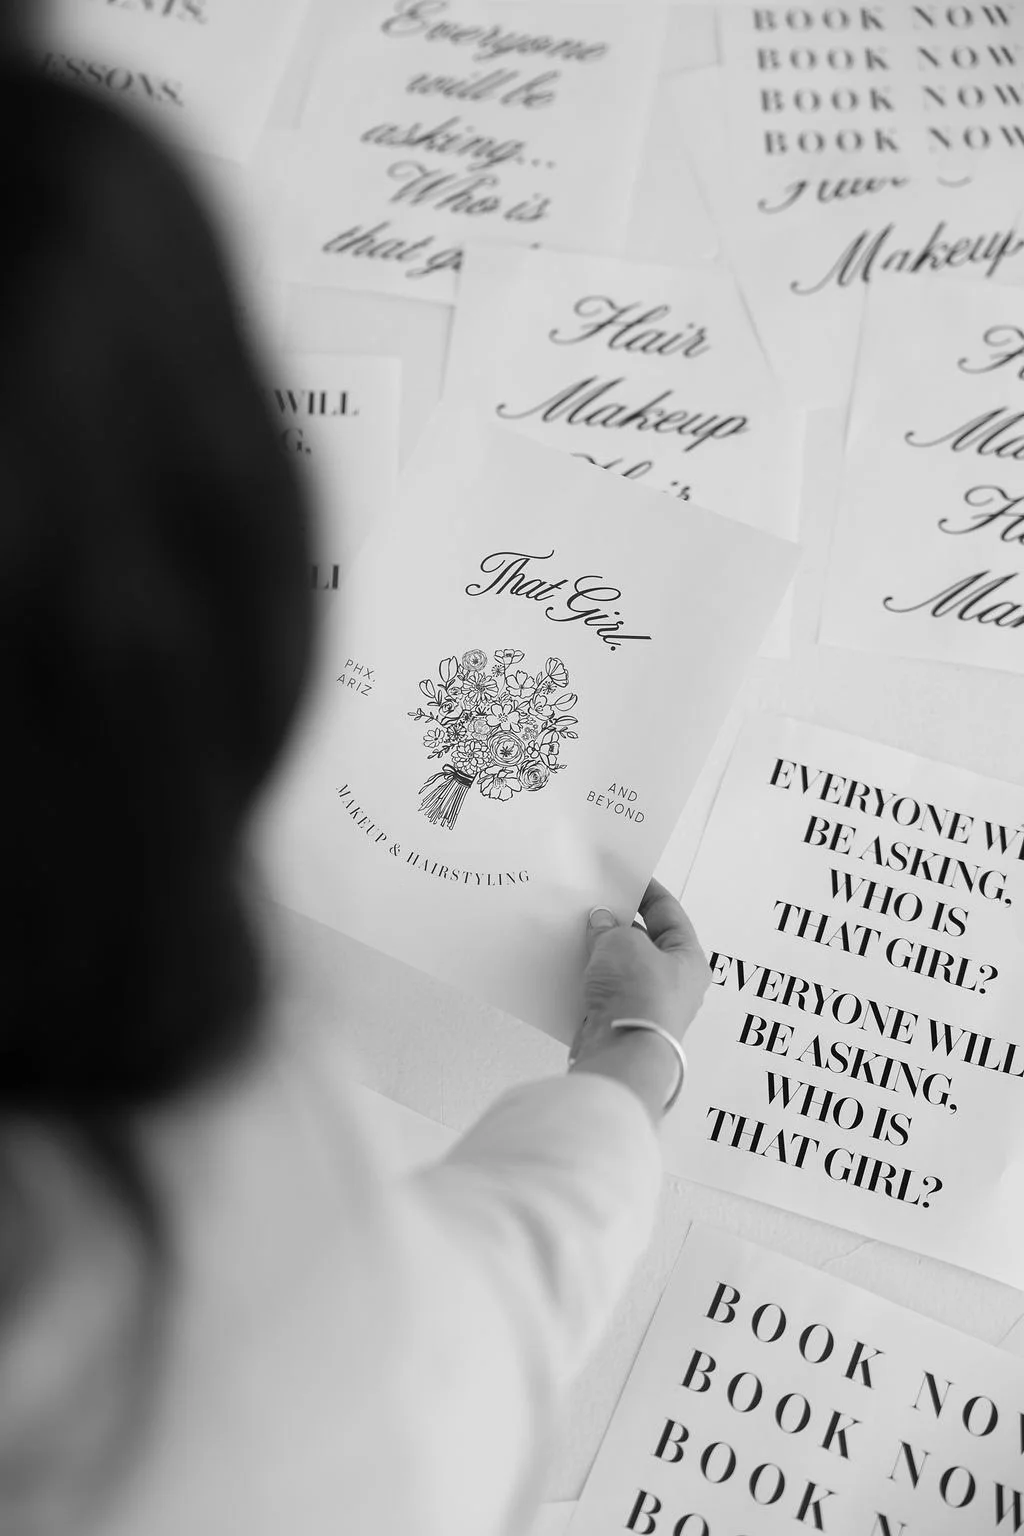 Everyone
will be
asking...
Who is
that
BOOK NOW
BOOK NOW
BOOK NOW
BOOK NOW
Makeup
Hair
Makeup
WILL
That Girl.
PHX.
ARIZ
AND
BEYOND
MAKEUP & HAIRSTYLING
EVERYONE
BE ASKING,
WHO IS
THAT GIRL?
EVERYONE WILL
BE ASKING,
WHO IS
THAT GIRL?
BOOK NOW
BOOK NOW
BOOK NOW
BOOK